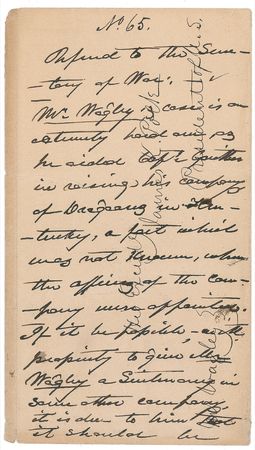 No. 65.
Refered to the Secre-
-tary of War.
Mr. Wagley's case is an
extremely hard one, as
he aided Capt
in raising his company
of Dragoons in Ken-
-tucky, a fact which
was not known, when
the officers of the com-
-pany were appointed.
If it be possible, with
propriety to give Mr.
Wagley a Lieutenancy in
some other company,
it is due to him that
it should be
James K. Polk
President of U.S.